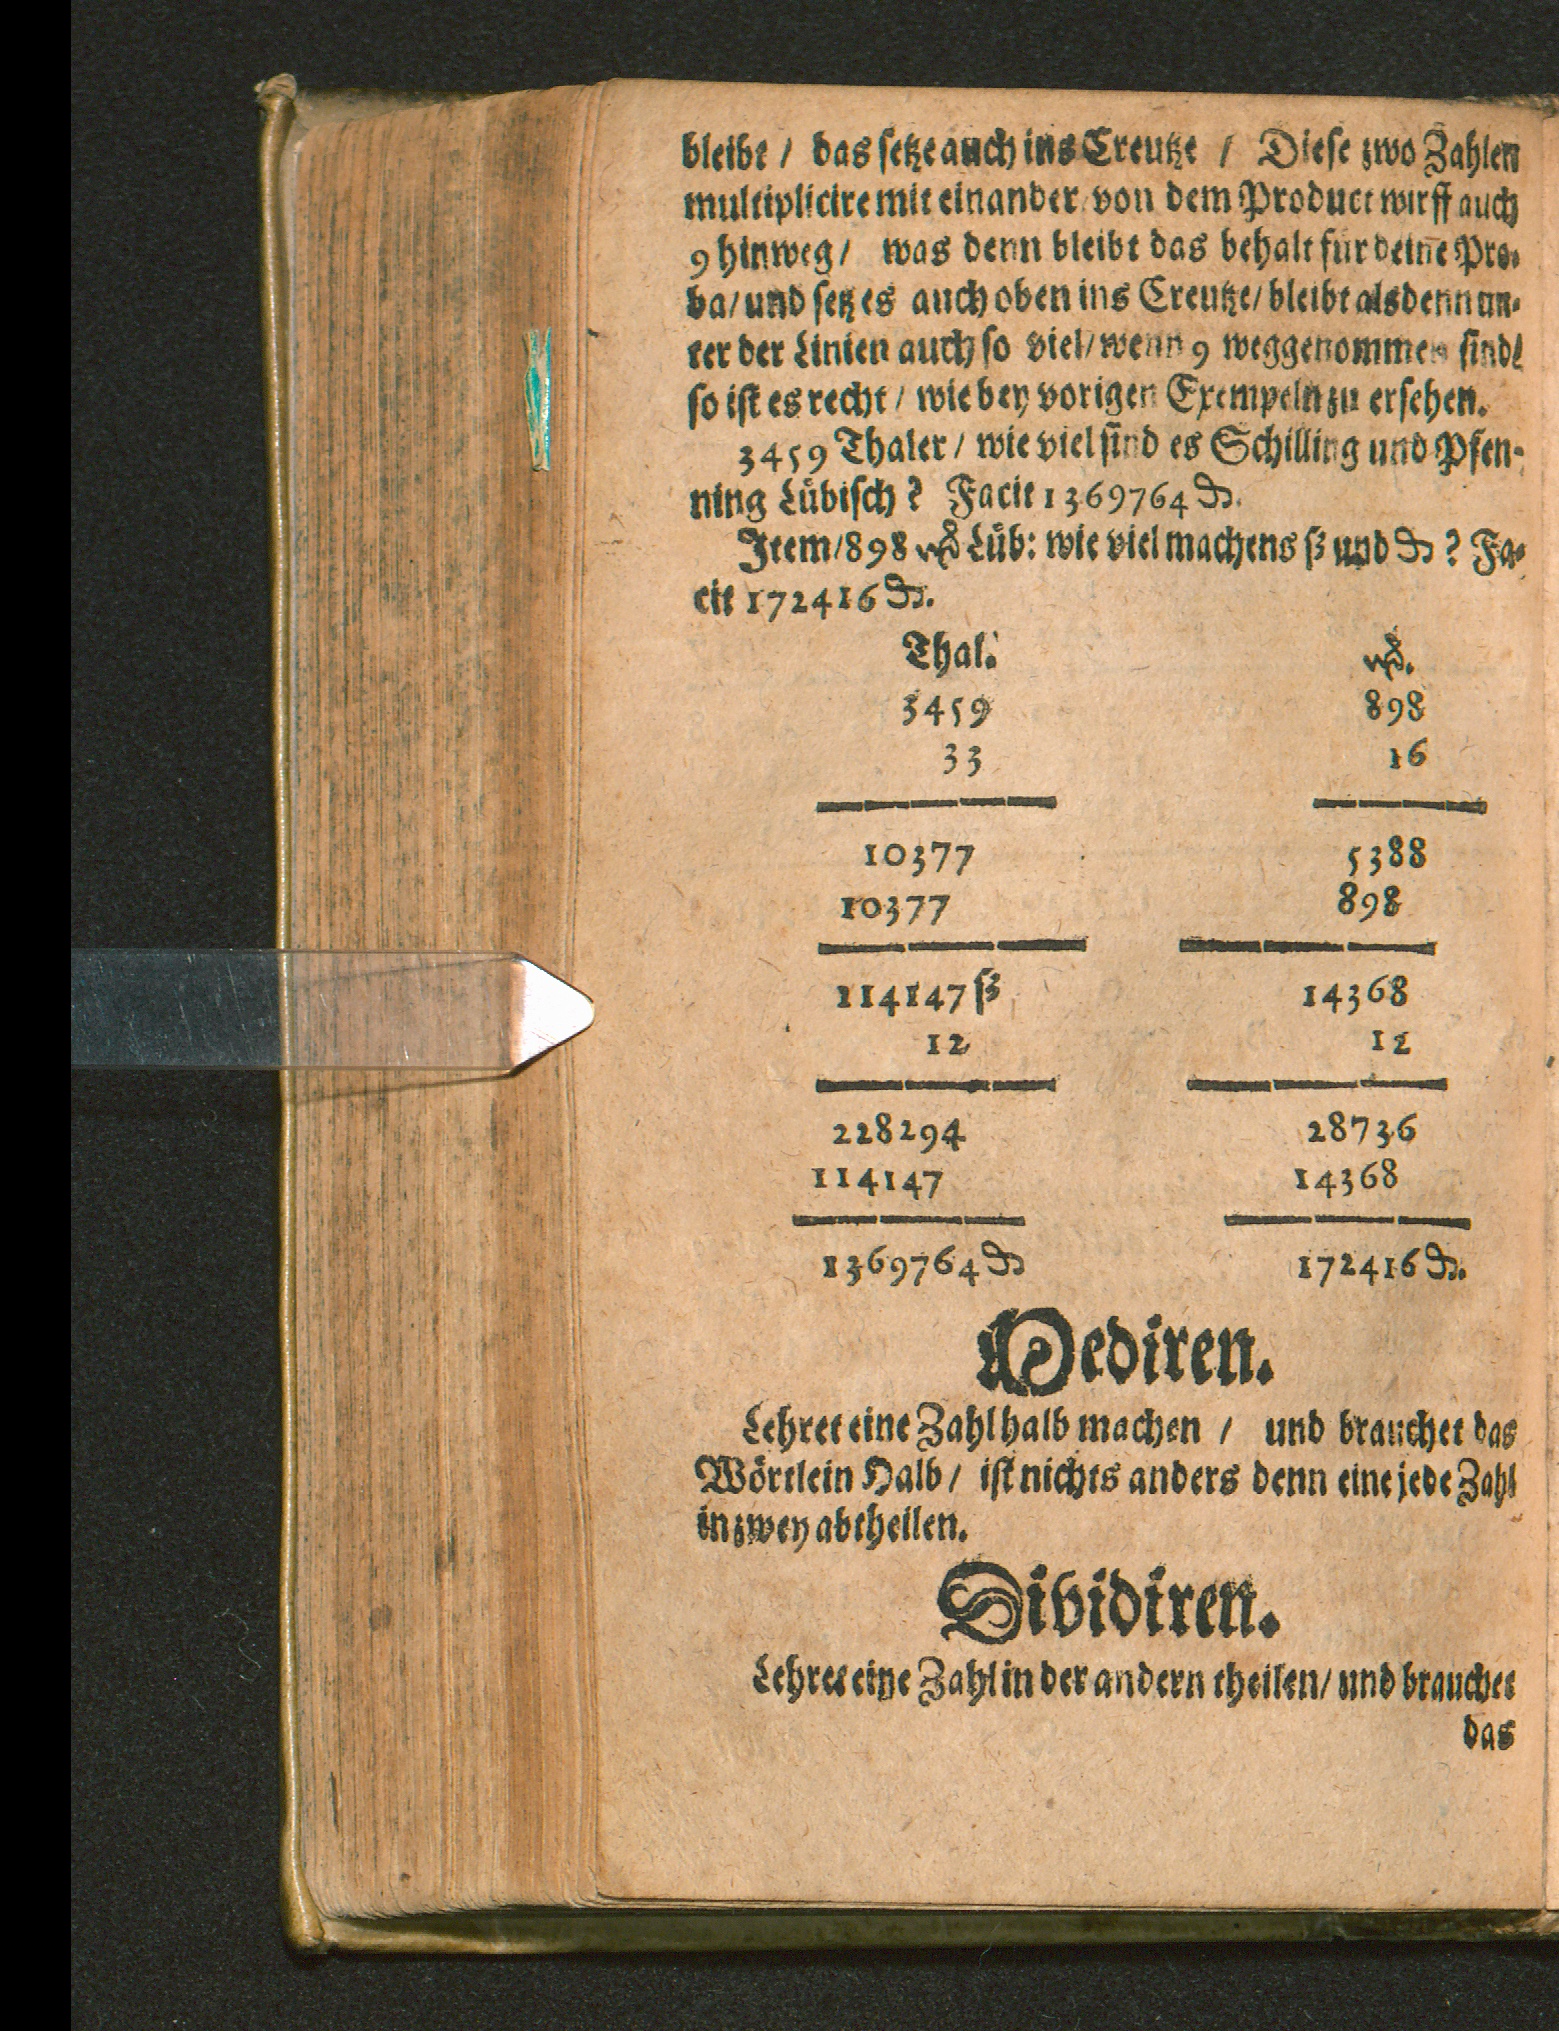 bleibt / das setze auch ins Creutze / Diese zwo Zahlen
multiplicire mit einander von dem Product wirff auch
9 hinweg / was denn bleibt das behalt für deine Pro-
ba / und setz es auch oben ins Creutze / bleibt alsdenn un-
ter der Linien auch so viel / wenn 9 weggenommen sind /
so ist es recht / wie bey vorigen Exempeln zu ersehen.
3459 Thaler / wie viel sind es Schilling und Pfen-
ning Lübisch ? Facit 1369764 ₰.
Item / 898 Lüb: wie viel machens ß und ₰ ? Fa-
cit 172416 ₰.
Thal.
3459 898
33 16
10377 5388
10377 898
114147 ß 14368
12 12
228294 28736
114147 14368
1369764 ₰ 172416 ₰.
Mediren.
Lehret eine Zahl halb machen / und brauchet das
Wörtlein Halb / ist nichts anders denn eine jede Zahl
in zwey abtheilen.
Dividiren.
Lehret eine Zahl in der andern theilen / und brauchet
das